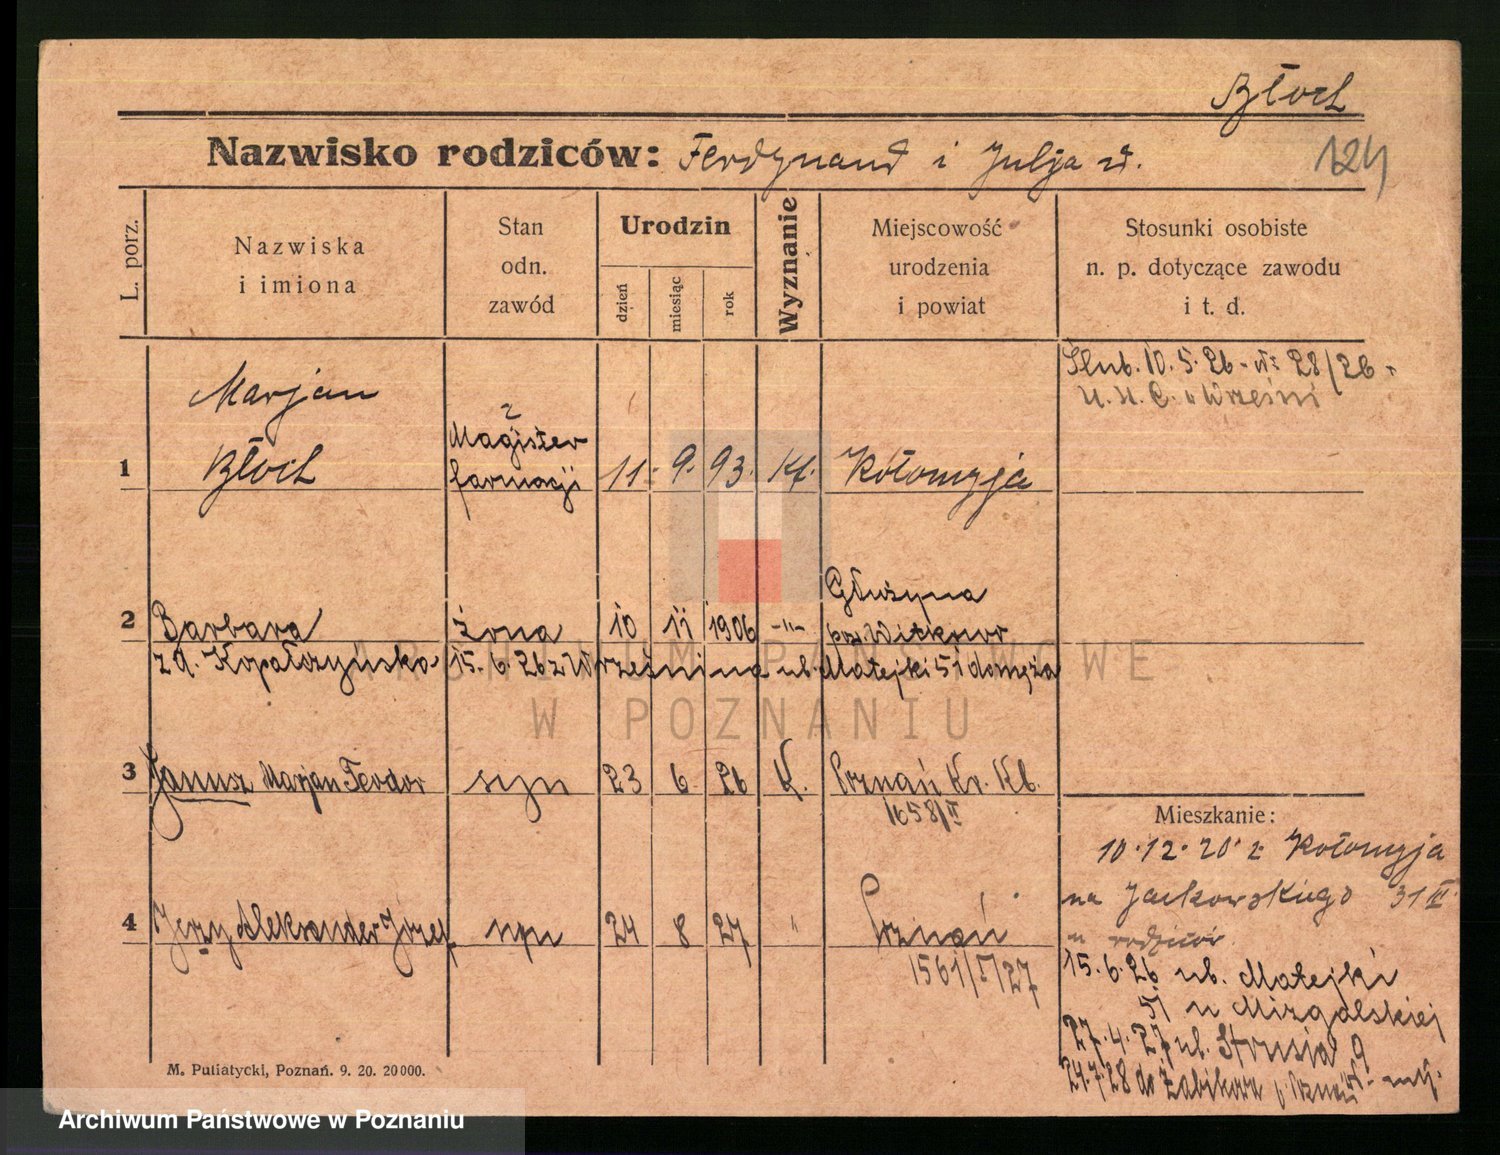 Błoch
Nazwisko rodziców: Ferdynand i Julja
124
L. porz.
Nazwiska
i imiona
Stan
odn.
zawód
Urodzin
dzień
miesiąc
rok
Wyznanie
Miejscowość
urodzenia
i powiat
Stosunki osobiste
n. p. dotyczące zawodu
i t. d.
Ślub. 10. 5. 26 28/26
U. S. C. Wrześni
Marjan
1 Błoch Magister farmacji 11. 9. 93. Kt. Kołomyja
2 Barbara żona 10 11 1906 -"- Głużyna
pow. Witkowo
z d. Kopałczyńska 15. 6. 26 z Wrześni na ul. Matejki 51 do męża
3 Janusz Marjan Teodor syn 23 6 26 K. Poznań Kr. Kb.
1658/II
4 Jerzy Aleksander Józef syn 24 8 27 " Poznań
1561/I/27
Mieszkanie:
10. 12. 20 z Kołomyja
na Jackowskiego 31 III
u rodziców
15. 6. 26 ul. Matejki
51 u Mizgalskiej
27. 4. 27 ul. Strusia 9
24. 7. 28 do Żabikowa
M. Putiatycki, Poznań. 9. 20. 20000.
ARCHIWUM PAŃSTWOWE
W POZNANIU
Archiwum Państwowe w Poznaniu